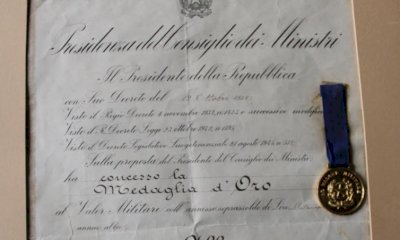 Presidenza del Consiglio dei Ministri
Il Presidente della Repubblica
con Suo Decreto del
Visto il Regio Decreto 4 novembre 1932, n. 1423 e successive
Visto il R. Decreto Legge 23 ottobre 1942, n. 1195
Visto il Decreto Legislativo Luogotenenziale 21 agosto 1945, n.
Sulla proposta del Presidente del Consiglio dei Ministri
ha concesso la
Medaglia d'Oro
al Valor Militare coll'annesso soprassoldo di Lire
annue al